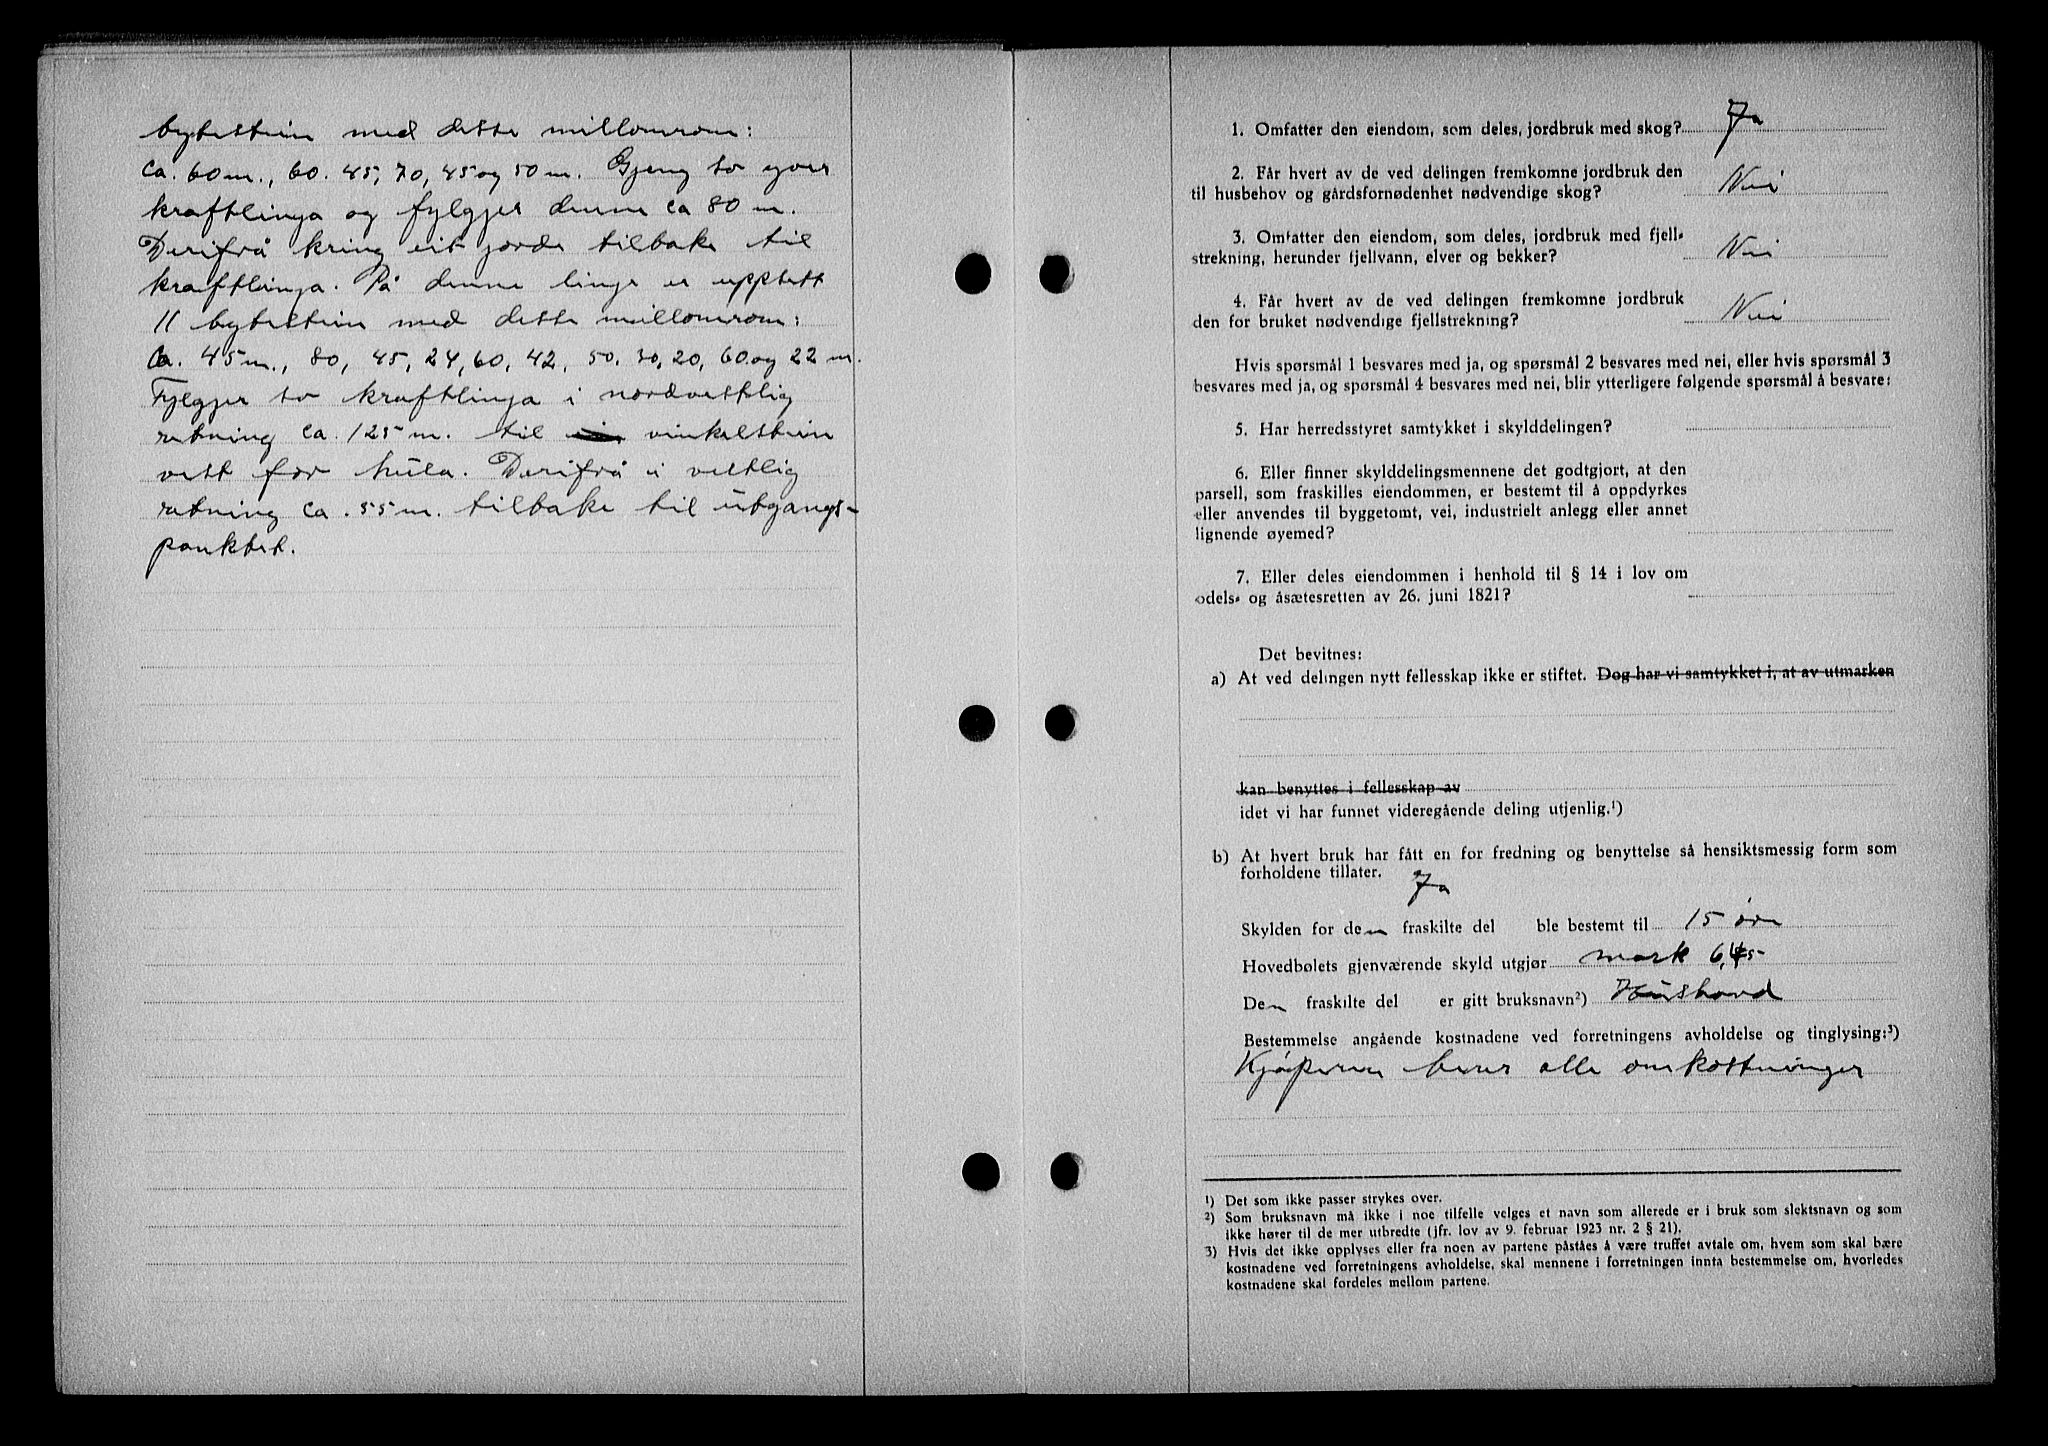 bytestein med dette millomrom:
ca. 60 m., 60. 45, 70, 45 og 50 m. Gjeng so yver
kraftlinja og fylgjer denne ca 80 m.
Derifrå kring eit jorde tilbake til
kraftlinja. På denne linje er uppsett
11 bytestein med dette millomrom:
Ca. 45 m., 80, 45, 24, 60, 42, 50. 30, 20, 60 og 22 m.
Fylgjer so kraftlinja i nordvestlig
retning ca. 125 m. til vinkelstein
vest for hula. Derifrå i vestlig
retning ca. 55 m. tilbake til utgangs-
punktet.
1. Omfatter den eiendom, som deles, jordbruk med skog? Ja
2. Får hvert av de ved delingen fremkomne jordbruk den
til husbehov og gårdsfornødenhet nødvendige skog? Nei
3. Omfatter den eiendom, som deles, jordbruk med fjell-
strekning, herunder fjellvann, elver og bekker? Nei
4. Får hvert av de ved delingen fremkomne jordbruk
den for bruket nødvendige fjellstrekning? Nei
Hvis spørsmål 1 besvares med ja, og spørsmål 2 besvares med nei, eller hvis spørsmål 3
besvares med ja, og spørsmål 4 besvares med nei, blir ytterligere følgende spørsmål å besvare:
5. Har herredsstyret samtykket i skylddelingen?
6. Eller finner skylddelingsmennene det godtgjort, at den
parsell, som fraskilles eiendommen, er bestemt til å oppdyrkes
eller anvendes til byggetomt, vei, industrielt anlegg eller annet
lignende øyemed?
7. Eller deles eiendommen i henhold til § 14 i lov om
odels- og åsætesretten av 26. juni 1821?
Det bevitnes:
a) At ved delingen nytt fellesskap ikke er stiftet. Dog har vi samtykket i, at av utmarken
kan benyttes i fellesskap av
idet vi har funnet videregående deling utjenlig.¹)
b) At hvert bruk har fått en for fredning og benyttelse så hensiktsmessig form som
forholdene tillater. Ja
Skylden for den fraskilte del ble bestemt til 15 øre
Hovedbølets gjenværende skyld utgjør mark 6,45
Den fraskilte del er gitt bruksnavn²) Hushovd
Bestemmelse angående kostnadene ved forretningens avholdelse og tinglysing:³)
Kjøperen berer alle omkostninger
¹) Det som ikke passer strykes over.
²) Som bruksnavn må ikke i noe tilfelle velges et navn som allerede er i bruk som slektsnavn og som
ikke hører til de mer utbredte (jfr. lov av 9. februar 1923 nr. 2 § 21).
3) Hvis det ikke opplyses eller fra noen av partene påståes å være truffet avtale om, hvem som skal bære
kostnadene ved forretningens avholdelse, skal mennene i forretningen innta bestemmelse om, hvorledes
kostnadene skal fordeles mellom partene.